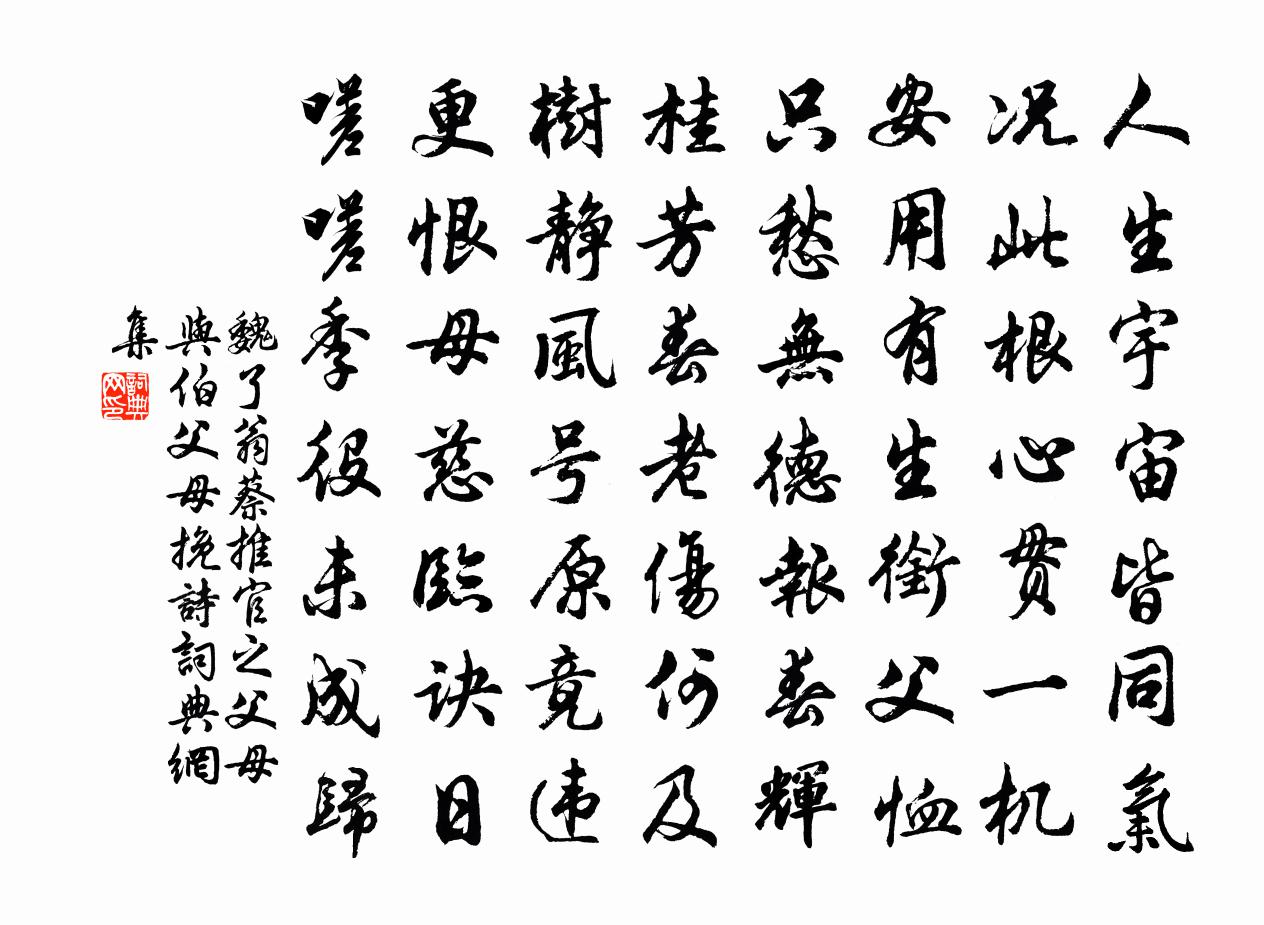 人生宇宙皆同氣
况此根心贯一机
安用有生銜父恤
只愁無德報春輝
桂芳春老傷何及
樹静風号原竟违
更恨母慈臨诀日
嗟嗟季役未成歸
魏了翁蔡推官之父母
與伯父母挽詩詞典網
集
詞典
网印